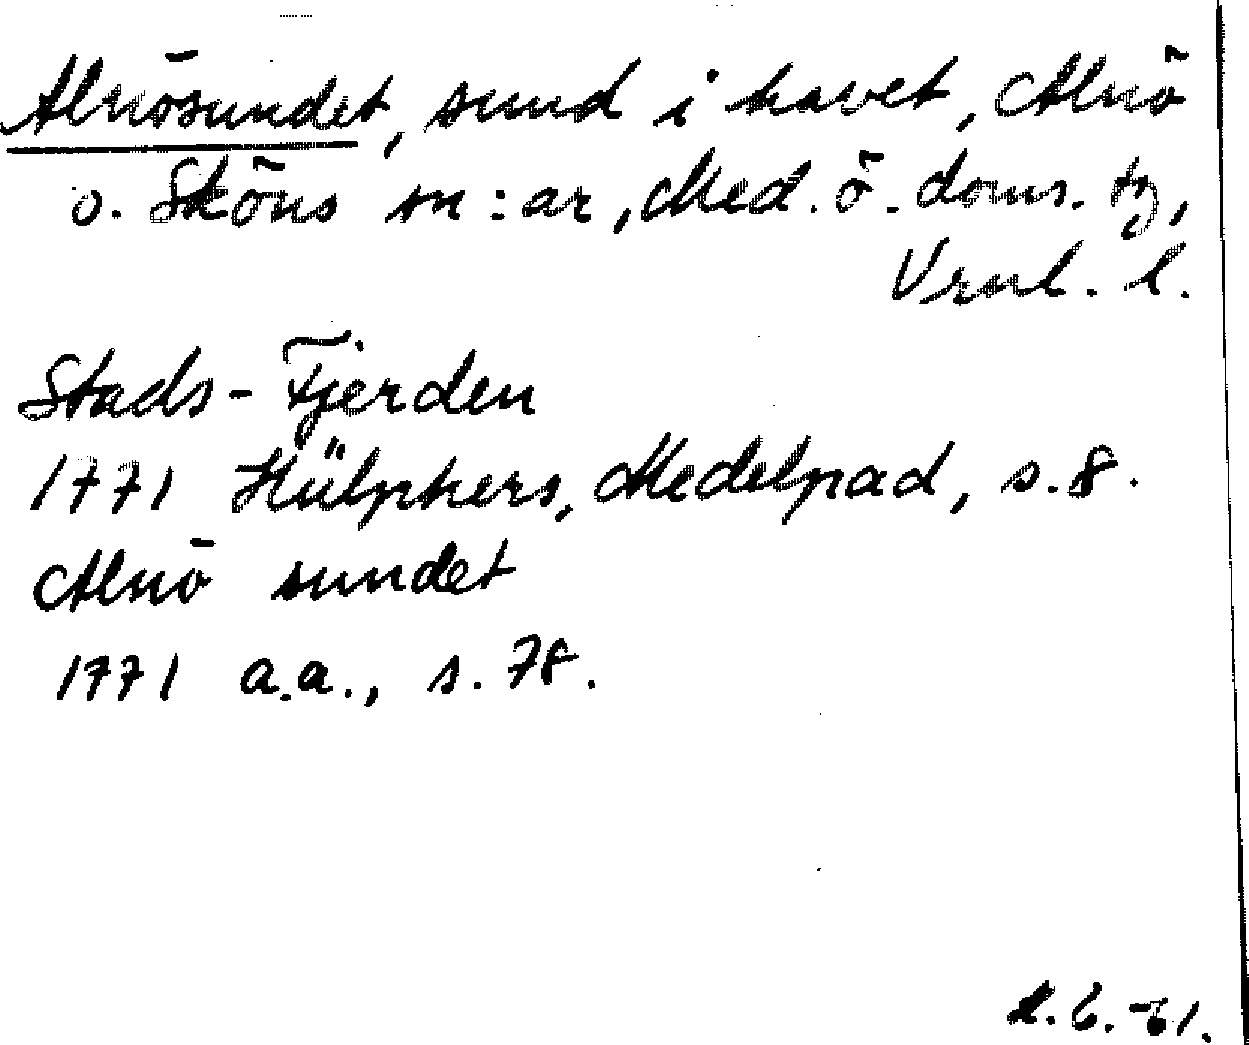 Alnösundet, sund i havet, Alnö
o. Sköns sn:ar, Med. ö. doms. tg,
Vrnl. l.
Stads-Fjerden
1771 Hülphers, Medelpad, s.8.
Alnö sundet
1771 a.a., s.78.
2.6.-61.